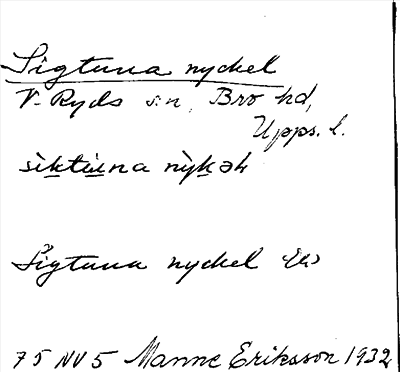 Sigtuna nyckel
V. Ryds sn, Bro hd,
Upps. l.
sìktùna nỳkəl
Sigtuna nyckel
75 NV 5 Manne Eriksson 1932